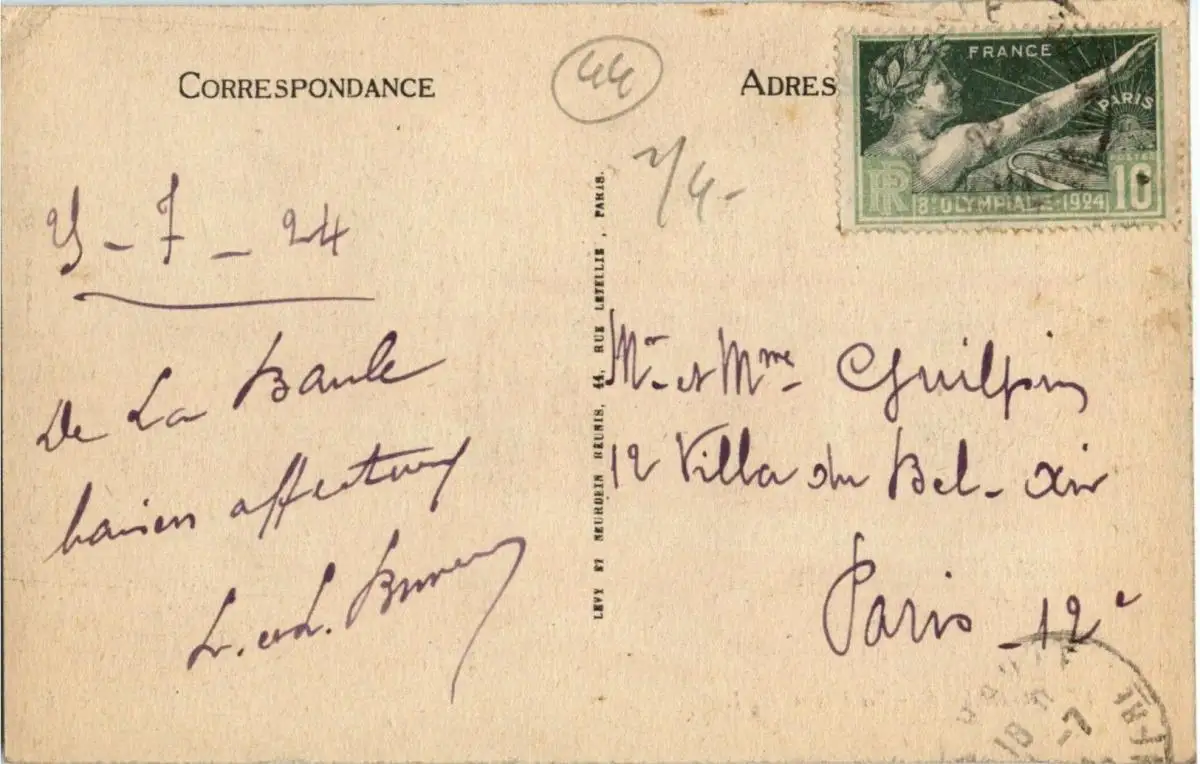 CORRESPONDANCE
44
ADRES
FRANCE
PARIS
POSTES
RF
8e OLYMPIADE 1924
10
LEVY ET NEURDEIN RÉUNIS, 44, RUE LETELLIE , PARIS.
- 7 - 24
De La Baule
baisers affectueux
L. et L.
Mr et Mme Guilpin
12 Villa du Bel-Air
Paris - 12e
18
-7